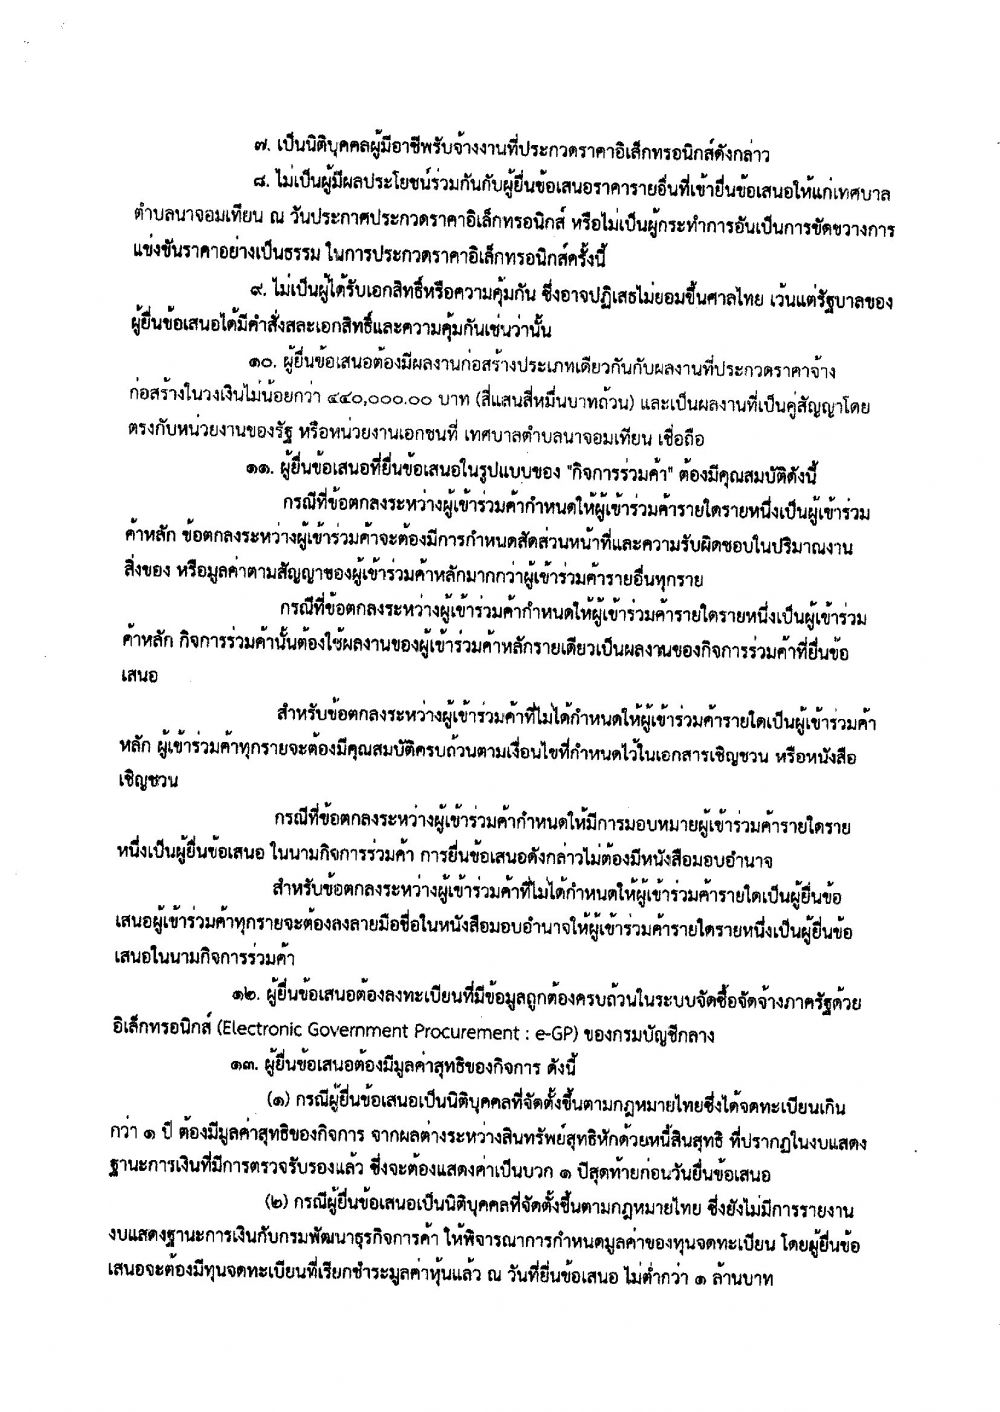 ๗. เป็นนิติบุคคลผู้มีอาชีพรับจ้างงานที่ประกวดราคาอิเล็กทรอนิกส์ดังกล่าว
๘. ไม่เป็นผู้มีผลประโยชน์ร่วมกันกับผู้ยื่นข้อเสนอราคารายอื่นที่เข้ายื่นข้อเสนอให้แก่เทศบาล
ตำบลนาจอมเทียน ณ วันประกาศประกวดราคาอิเล็กทรอนิกส์ หรือไม่เป็นผู้กระทำการอันเป็นการขัดขวางการ
แข่งขันราคาอย่างเป็นธรรม ในการประกวดราคาอิเล็กทรอนิกส์ครั้งนี้
๙. ไม่เป็นผู้ได้รับเอกสิทธิ์หรือความคุ้มกัน ซึ่งอาจปฏิเสธไม่ยอมขึ้นศาลไทย เว้นแต่รัฐบาลของ
ผู้ยื่นข้อเสนอได้มีคำสั่งสละเอกสิทธิ์และความคุ้มกันเช่นว่านั้น
๑๐. ผู้ยื่นข้อเสนอต้องมีผลงานก่อสร้างประเภทเดียวกันกับผลงานที่ประกวดราคาจ้าง
ก่อสร้างในวงเงินไม่น้อยกว่า ๔๔๐,๐๐๐.๐๐ บาท (สี่แสนสี่หมื่นบาทถ้วน) และเป็นผลงานที่เป็นคู่สัญญาโดย
ตรงกับหน่วยงานของรัฐ หรือหน่วยงานเอกชนที่ เทศบาลตำบลนาจอมเทียน เชื่อถือ
๑๑. ผู้ยื่นข้อเสนอที่ยื่นข้อเสนอในรูปแบบของ "กิจการร่วมค้า" ต้องมีคุณสมบัติดังนี้
กรณีที่ข้อตกลงระหว่างผู้เข้าร่วมค้ากำหนดให้ผู้เข้าร่วมค้ารายใดรายหนึ่งเป็นผู้เข้าร่วม
ค้าหลัก ข้อตกลงระหว่างผู้เข้าร่วมค้าจะต้องมีการกำหนดสัดส่วนหน้าที่และความรับผิดชอบในปริมาณงาน
สิ่งของ หรือมูลค่าตามสัญญาของผู้เข้าร่วมค้าหลักมากกว่าผู้เข้าร่วมค้ารายอื่นทุกราย
กรณีที่ข้อตกลงระหว่างผู้เข้าร่วมค้ากำหนดให้ผู้เข้าร่วมค้ารายใดรายหนึ่งเป็นผู้เข้าร่วม
ค้าหลัก กิจการร่วมค้านั้นต้องใช้ผลงานของผู้เข้าร่วมค้าหลักรายเดียวเป็นผลงานของกิจการร่วมค้าที่ยื่นข้อ
เสนอ
สำหรับข้อตกลงระหว่างผู้เข้าร่วมค้าที่ไม่ได้กำหนดให้ผู้เข้าร่วมค้ารายใดเป็นผู้เข้าร่วมค้า
หลัก ผู้เข้าร่วมค้าทุกรายจะต้องมีคุณสมบัติครบถ้วนตามเงื่อนไขที่กำหนดไว้ในเอกสารเชิญชวน หรือหนังสือ
เชิญชวน
กรณีที่ข้อตกลงระหว่างผู้เข้าร่วมค้ากำหนดให้มีการมอบหมายผู้เข้าร่วมค้ารายใดราย
หนึ่งเป็นผู้ยื่นข้อเสนอ ในนามกิจการร่วมค้า การยื่นข้อเสนอดังกล่าวไม่ต้องมีหนังสือมอบอำนาจ
สำหรับข้อตกลงระหว่างผู้เข้าร่วมค้าที่ไม่ได้กำหนดให้ผู้เข้าร่วมค้ารายใดเป็นผู้ยื่นข้อ
เสนอผู้เข้าร่วมค้าทุกรายจะต้องลงลายมือชื่อในหนังสือมอบอำนาจให้ผู้เข้าร่วมค้ารายใดรายหนึ่งเป็นผู้ยื่นข้อ
เสนอในนามกิจการร่วมค้า
๑๒. ผู้ยื่นข้อเสนอต้องลงทะเบียนที่มีข้อมูลถูกต้องครบถ้วนในระบบจัดซื้อจัดจ้างภาครัฐด้วย
อิเล็กทรอนิกส์ (Electronic Government Procurement : e-GP) ของกรมบัญชีกลาง
๑๓. ผู้ยื่นข้อเสนอต้องมีมูลค่าสุทธิของกิจการ ดังนี้
(๑) กรณีผู้ยื่นข้อเสนอเป็นนิติบุคคลที่จัดตั้งขึ้นตามกฎหมายไทยซึ่งได้จดทะเบียนเกิน
กว่า ๑ ปี ต้องมีมูลค่าสุทธิของกิจการ จากผลต่างระหว่างสินทรัพย์สุทธิหักด้วยหนี้สินสุทธิ ที่ปรากฏในงบแสดง
ฐานะการเงินที่มีการตรวจรับรองแล้ว ซึ่งจะต้องแสดงค่าเป็นบวก ๑ ปีสุดท้ายก่อนวันยื่นข้อเสนอ
(๒) กรณีผู้ยื่นข้อเสนอเป็นนิติบุคคลที่จัดตั้งขึ้นตามกฎหมายไทย ซึ่งยังไม่มีการรายงาน
งบแสดงฐานะการเงินกับกรมพัฒนาธุรกิจการค้า ให้พิจารณาการกำหนดมูลค่าของทุนจดทะเบียน โดยผู้ยื่นข้อ
เสนอจะต้องมีทุนจดทะเบียนที่เรียกชำระมูลค่าหุ้นแล้ว ณ วันที่ยื่นข้อเสนอ ไม่ต่ำกว่า ๑ ล้านบาท